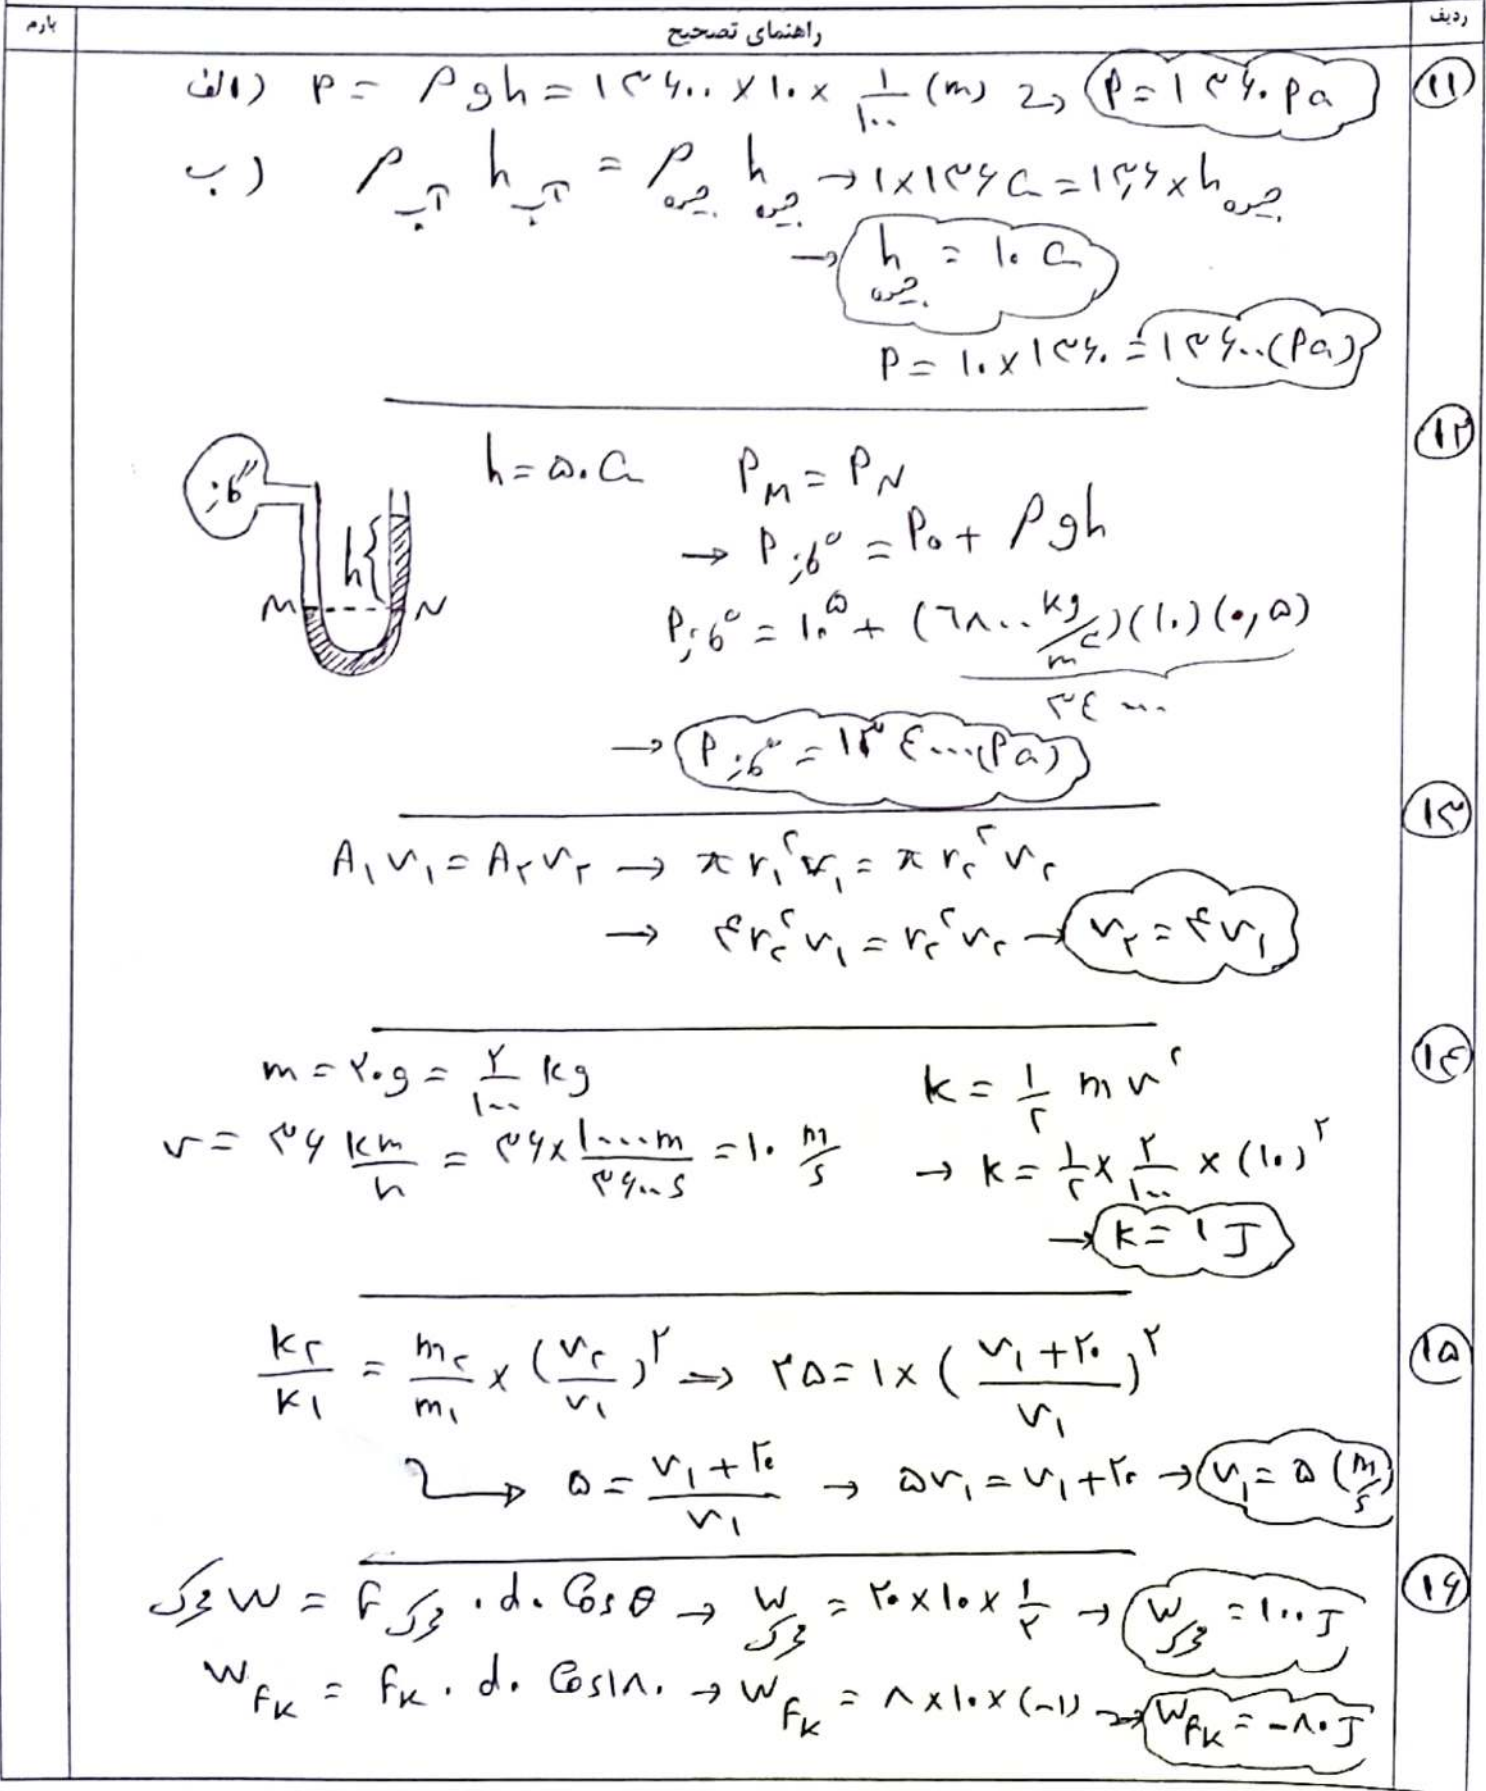 ردیف
راهنمای تصحیح
بارم
۱۱
الف) P = ρgh = ۱۳۶۰۰ × ۱۰ × ۱/۱۰۰ (m) → P = ۱۳۶۰ Pa
ب) ρ آب h آب = ρ جیوه h جیوه → ۱×۱۳۶ Cm = ۱۳٫۶ × h جیوه
→ h جیوه = ۱۰ Cm
P = ۱۰ × ۱۳۶۰ = ۱۳۶۰۰ (Pa)
۱۲
گاز
h
M N
h = ۵۰ Cm P_M = P_N
→ P گاز = P₀ + ρgh
P گاز = ۱۰^۵ + (۶۸۰۰ kg/m^۳)(۱۰)(۰,۵)
۳٤۰۰۰
→ P گاز = ۱۳٤۰۰۰ (Pa)
۱۳
A₁v₁ = A₂v₂ → π r₁² v₁ = π r₂² v₂
→ ۴r₂² v₁ = r₂² v₂ → v₂ = ۴v₁
۱٤
m = ۲۰g = ۲/۱۰۰ kg K = ۱/۲ m v²
v = ۳۶ km/h = ۳۶ × ۱۰۰۰m/۳۶۰۰s = ۱۰ m/s → K = ۱/۲ × ۲/۱۰۰ × (۱۰)^۲
→ K = ۱ J
۱۵
K₂/K₁ = m₂/m₁ × (v₂/v₁)^۲ → ۲۵ = ۱ × (v₁ + ۲۰/v₁)^۲
→ ۵ = v₁ + ۲۰/v₁ → ۵v₁ = v₁ + ۲۰ → v₁ = ۵ (m/s)
۱۶
W محرک = F محرک . d . Cos θ → W محرک = ۲۰ × ۱۰ × ۱/۲ → W محرک = ۱۰۰ J
W_fK = fK . d . Cos۱۸۰ → W_fK = ۸ × ۱۰ × (-۱) → W_fK = -۸۰ J